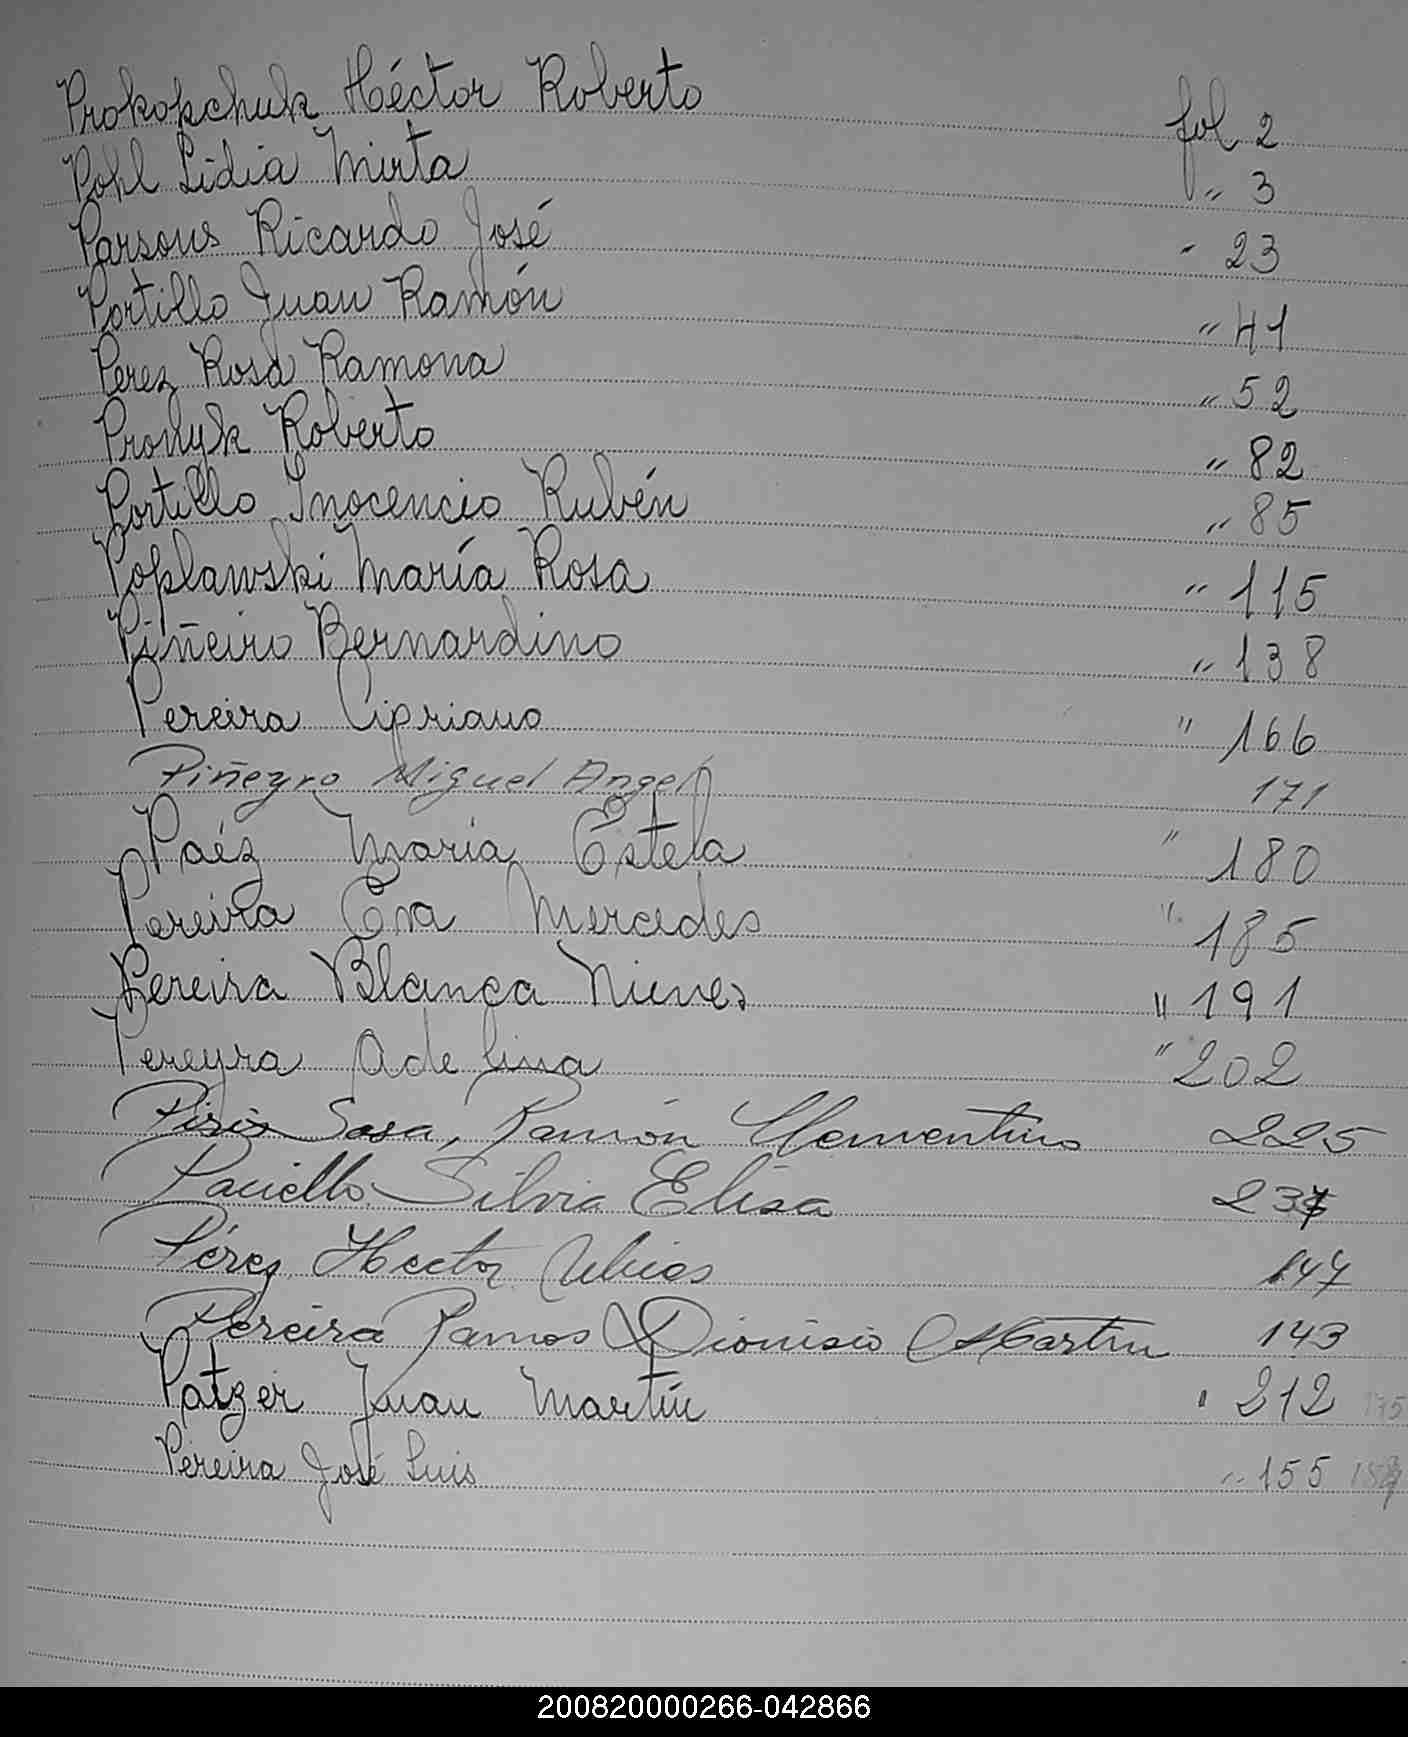 Prokopchuk Héctor Roberto fol 2
Pohl Lidia Mirta " 3
Parsons Ricardo José " 23
Portillo Juan Ramón " 41
Perez Rosa Ramona " 52
Pronyk Roberto " 82
Portillo Inocencio Rubén " 85
Poplawski María Rosa " 115
Piñeiro Bernardino " 138
Pereira Cipriano " 166
Piñeyro Miguel Angel 171
Paéz María Estela " 180
Pereira Eva Mercedes " 185
Pereira Blanca Nieves " 191
Pereyra Adelina " 202
Piris Sosa, Ramón Clementino 225
Paciello Silvia Elisa 237
Pérez Hector Ubies 147
Pereira Ramos Dionisio Martin 143
Patzer Juan Martín " 212 175
Pereira José Luis " 155
200820000266-042866